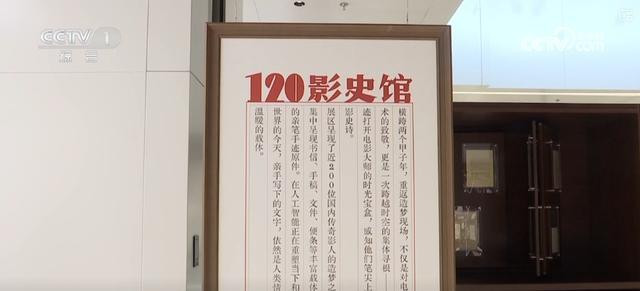 CCTV 1
综合
CCTV.com
120影史馆
横跨两个甲子年,重返造梦现场,不仅是对电
术的致敬,更是一次跨越时空的集体寻根——
迹打开电影大师的时光宝盒,或知他们笔尖上
影史诗。
展区呈现了近200位国内传奇影人的造梦之
集中呈现书信、手稿、文件、便条等丰富载体
的亲笔手迹原件。在人工智能正在重塑当下和
世界的今天,亲手写下的文字,依然是人类情
温暖的载体。